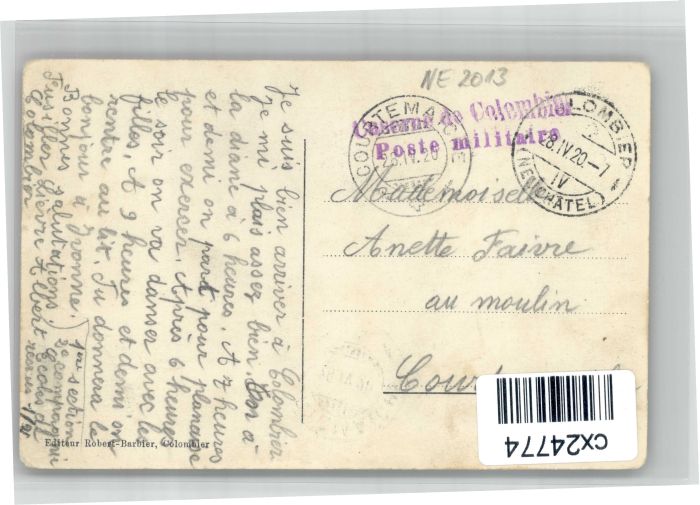 NE 2013
Caserne de Colombier
Poste militaire
COURTEMAICHE
28.IV.20
COLOMBIER
28.IV.20.-7
IV
(NEUCHÂTEL)
Mademoiselle
Anette Faivre
au moulin
Je suis bien arriver à Colombier
je mi plais assez bien. On à
la diane à 6 heures. A 7 heures
et demi on part pour planeise
pour exercer. Après 6 heures
le soir on va danser avec les
filles. A 9 heures et demi on
rentre au lit. Tu donnera le
bonjour à Yvonne.
Bonnes salutations
Fusilier Albert
Ecole de
Colombier
section
compagni
Editeur Robert-Barbier, Colombier
cx24774